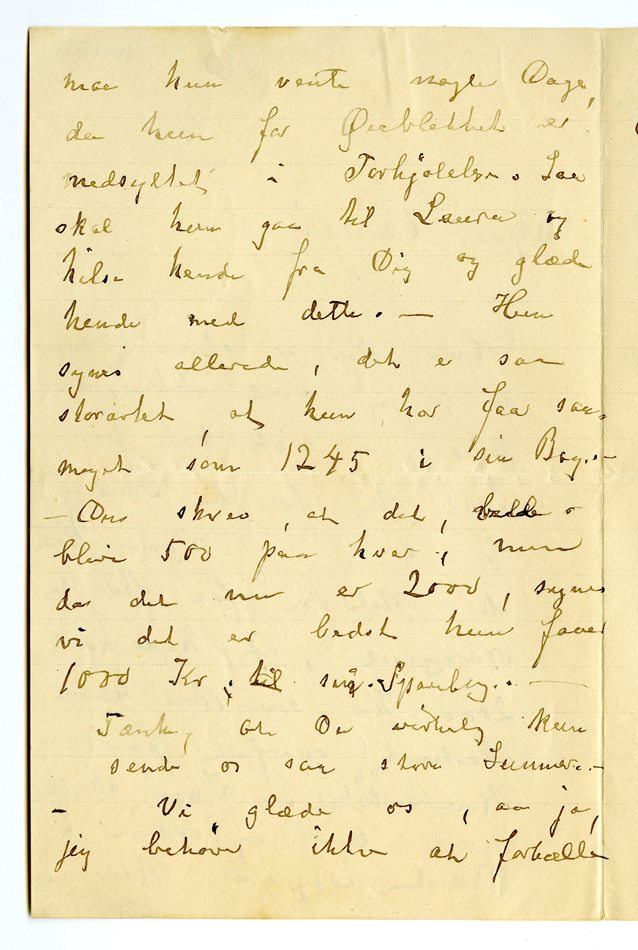 maa hun vente nogle Dage,
da hun for Øieblekket er
nedsyltet i Forkjølelse. Saa
skal hun gaa til Laura og
hilse hende fra Dig og glæde
hende med dette. — Hun
synes allerede, det er saa
storartet, at hun har faaet saa
meget som 1245 i sin Bog. —
— Du skrev, at det, vilde
blive 500 paa hver, men
da det nu er 2000, synes
vi det er bedst hun faaer
1000 Kr. til sin Sparebog. —
Tænk, at Du virkelig kan
sende os saa store Summer. —
— Vi glæde os, aa ja,
jeg behøver ikke at fortælle